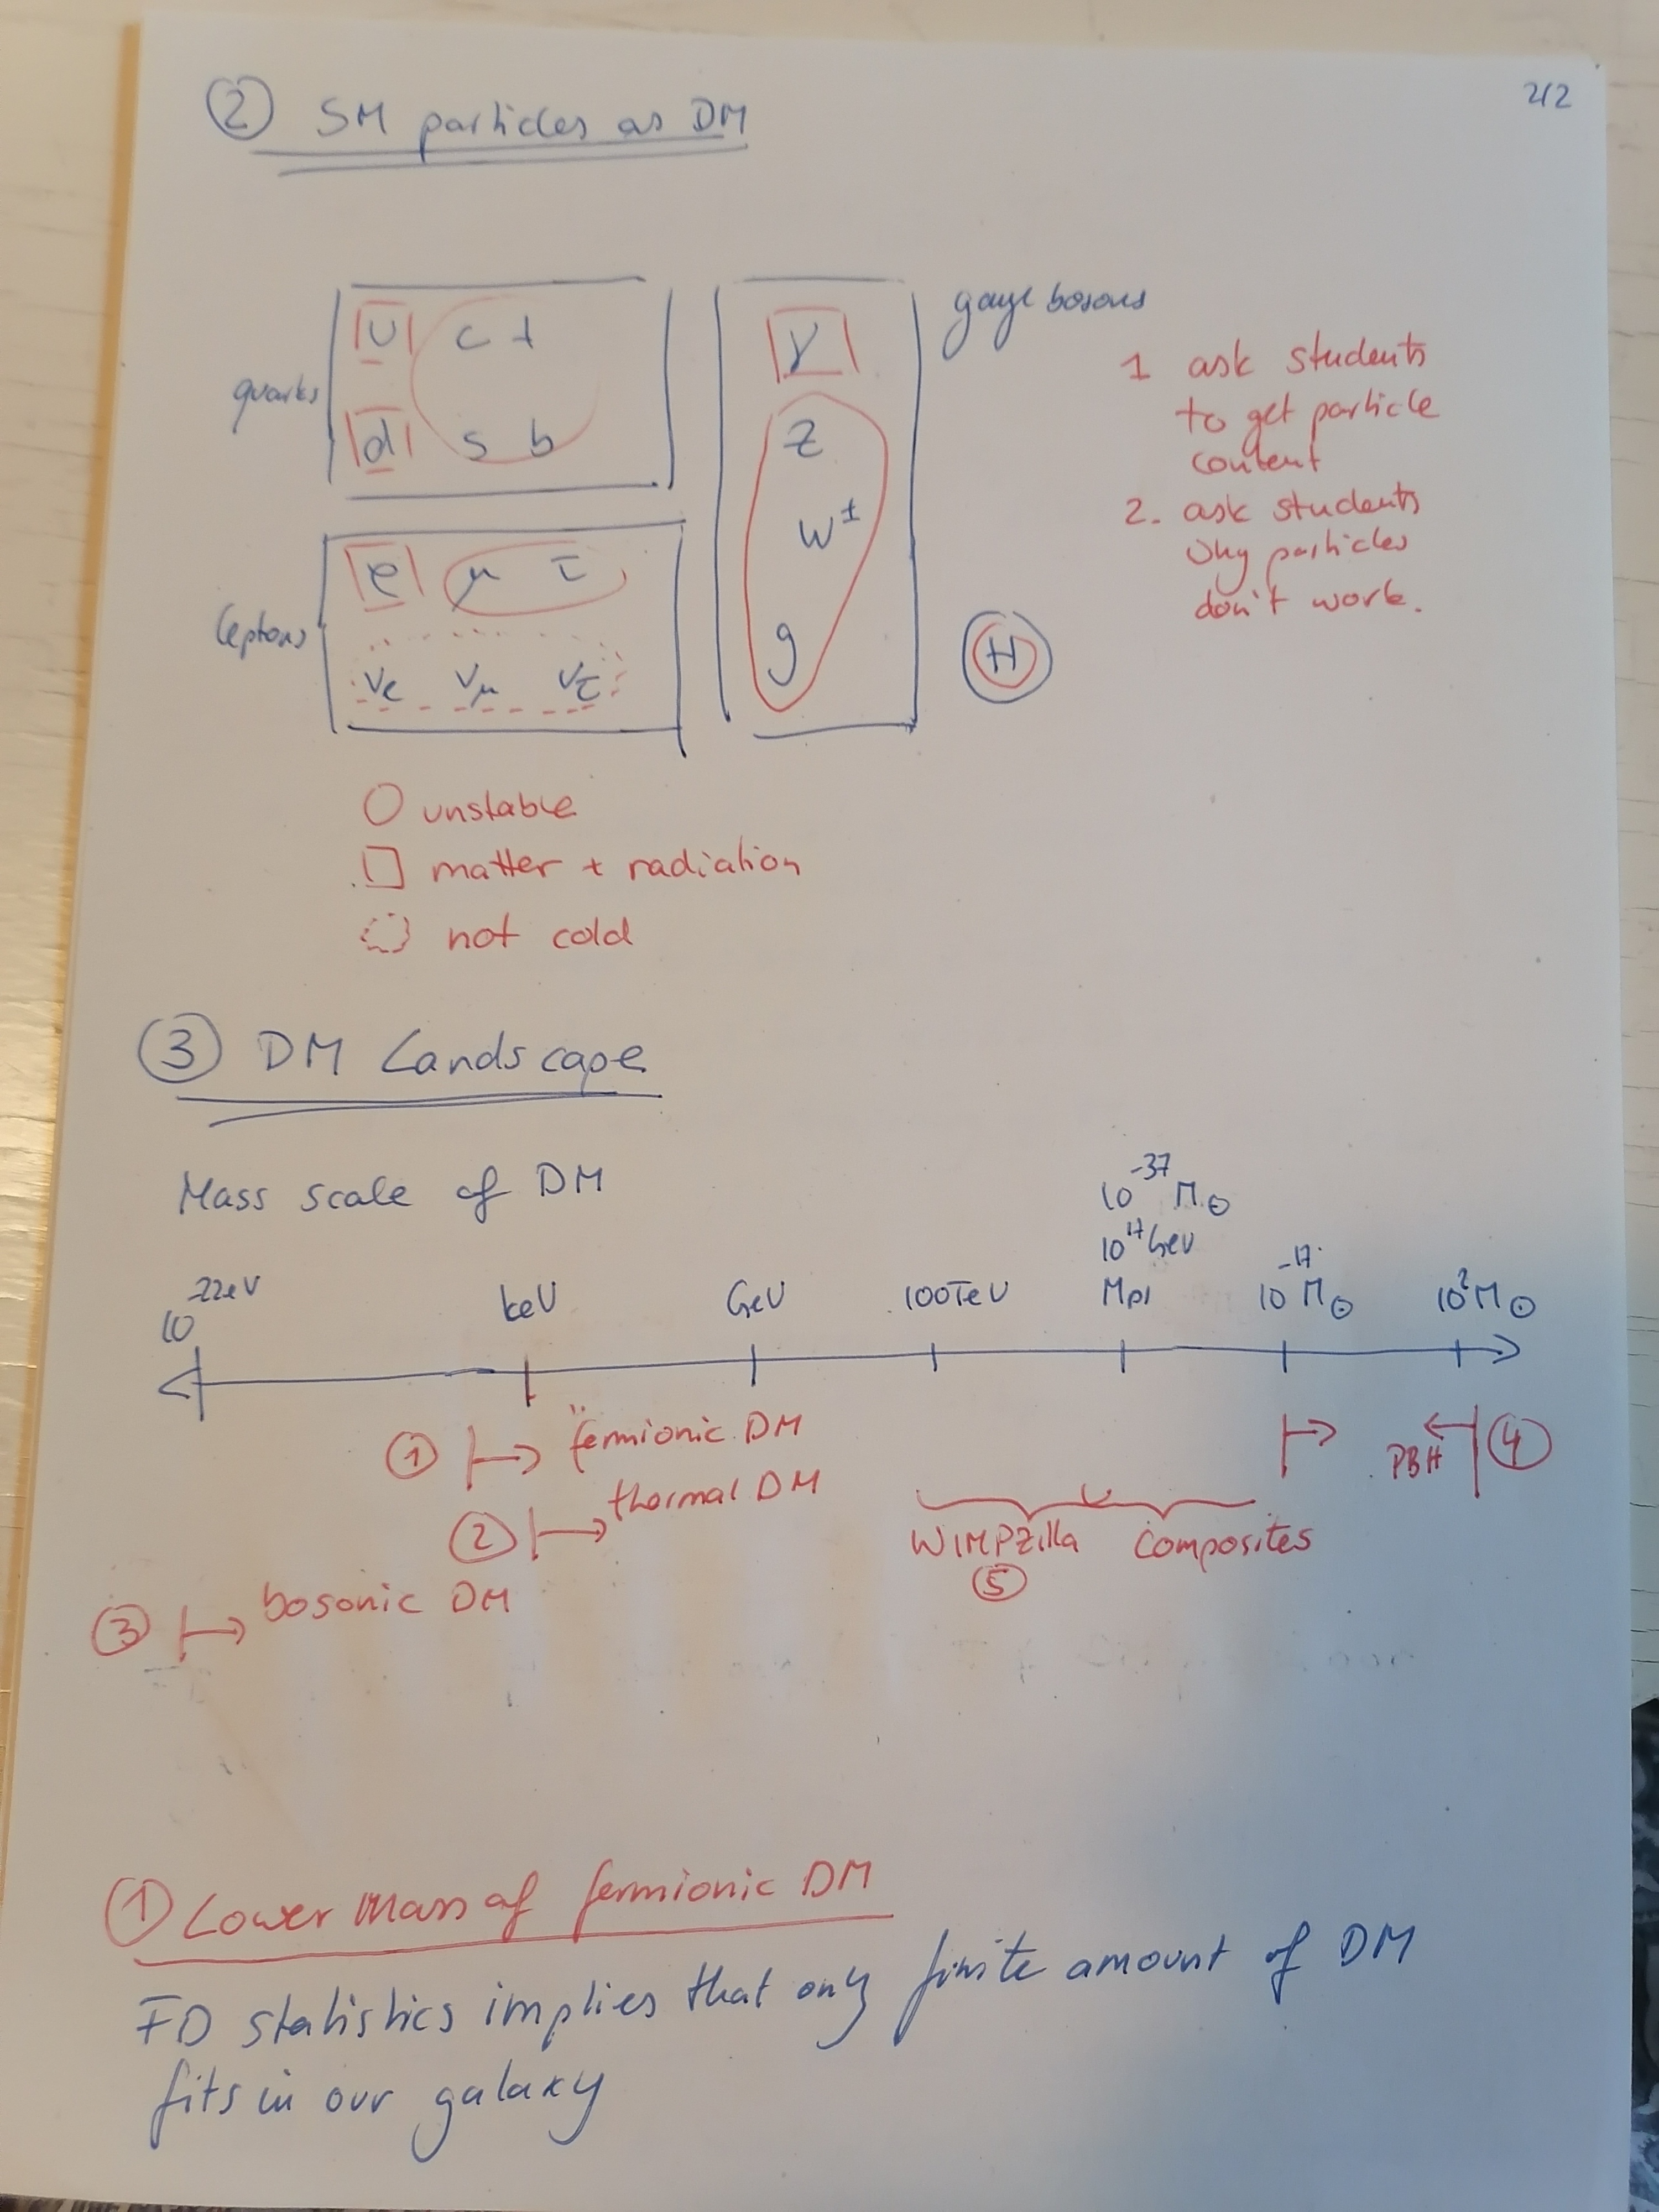 212
② SM particles as DM
gauge bosons
quarks
u c t
d s b
leptons
e μ τ
νe νμ ντ
γ
Z
W±
g
H
1 ask students
to get particle
content
2. ask students
why particles
don't work.
○ unstable
□ matter + radiation
◌ not cold
③ DM Landscape
Mass scale of DM
10^-37 M⊙
10^17 GeV
10^-22 eV keV GeV 100TeV Mpl 10^-17 M⊙ 10^2 M⊙
① ↦ fermionic DM
② ↦ thermal DM
③ ↦ bosonic DM
PBH ④
WIMPzilla Composites
⑤
① Lower mass of fermionic DM
FD statistics implies that only finite amount of DM
fits in our galaxy